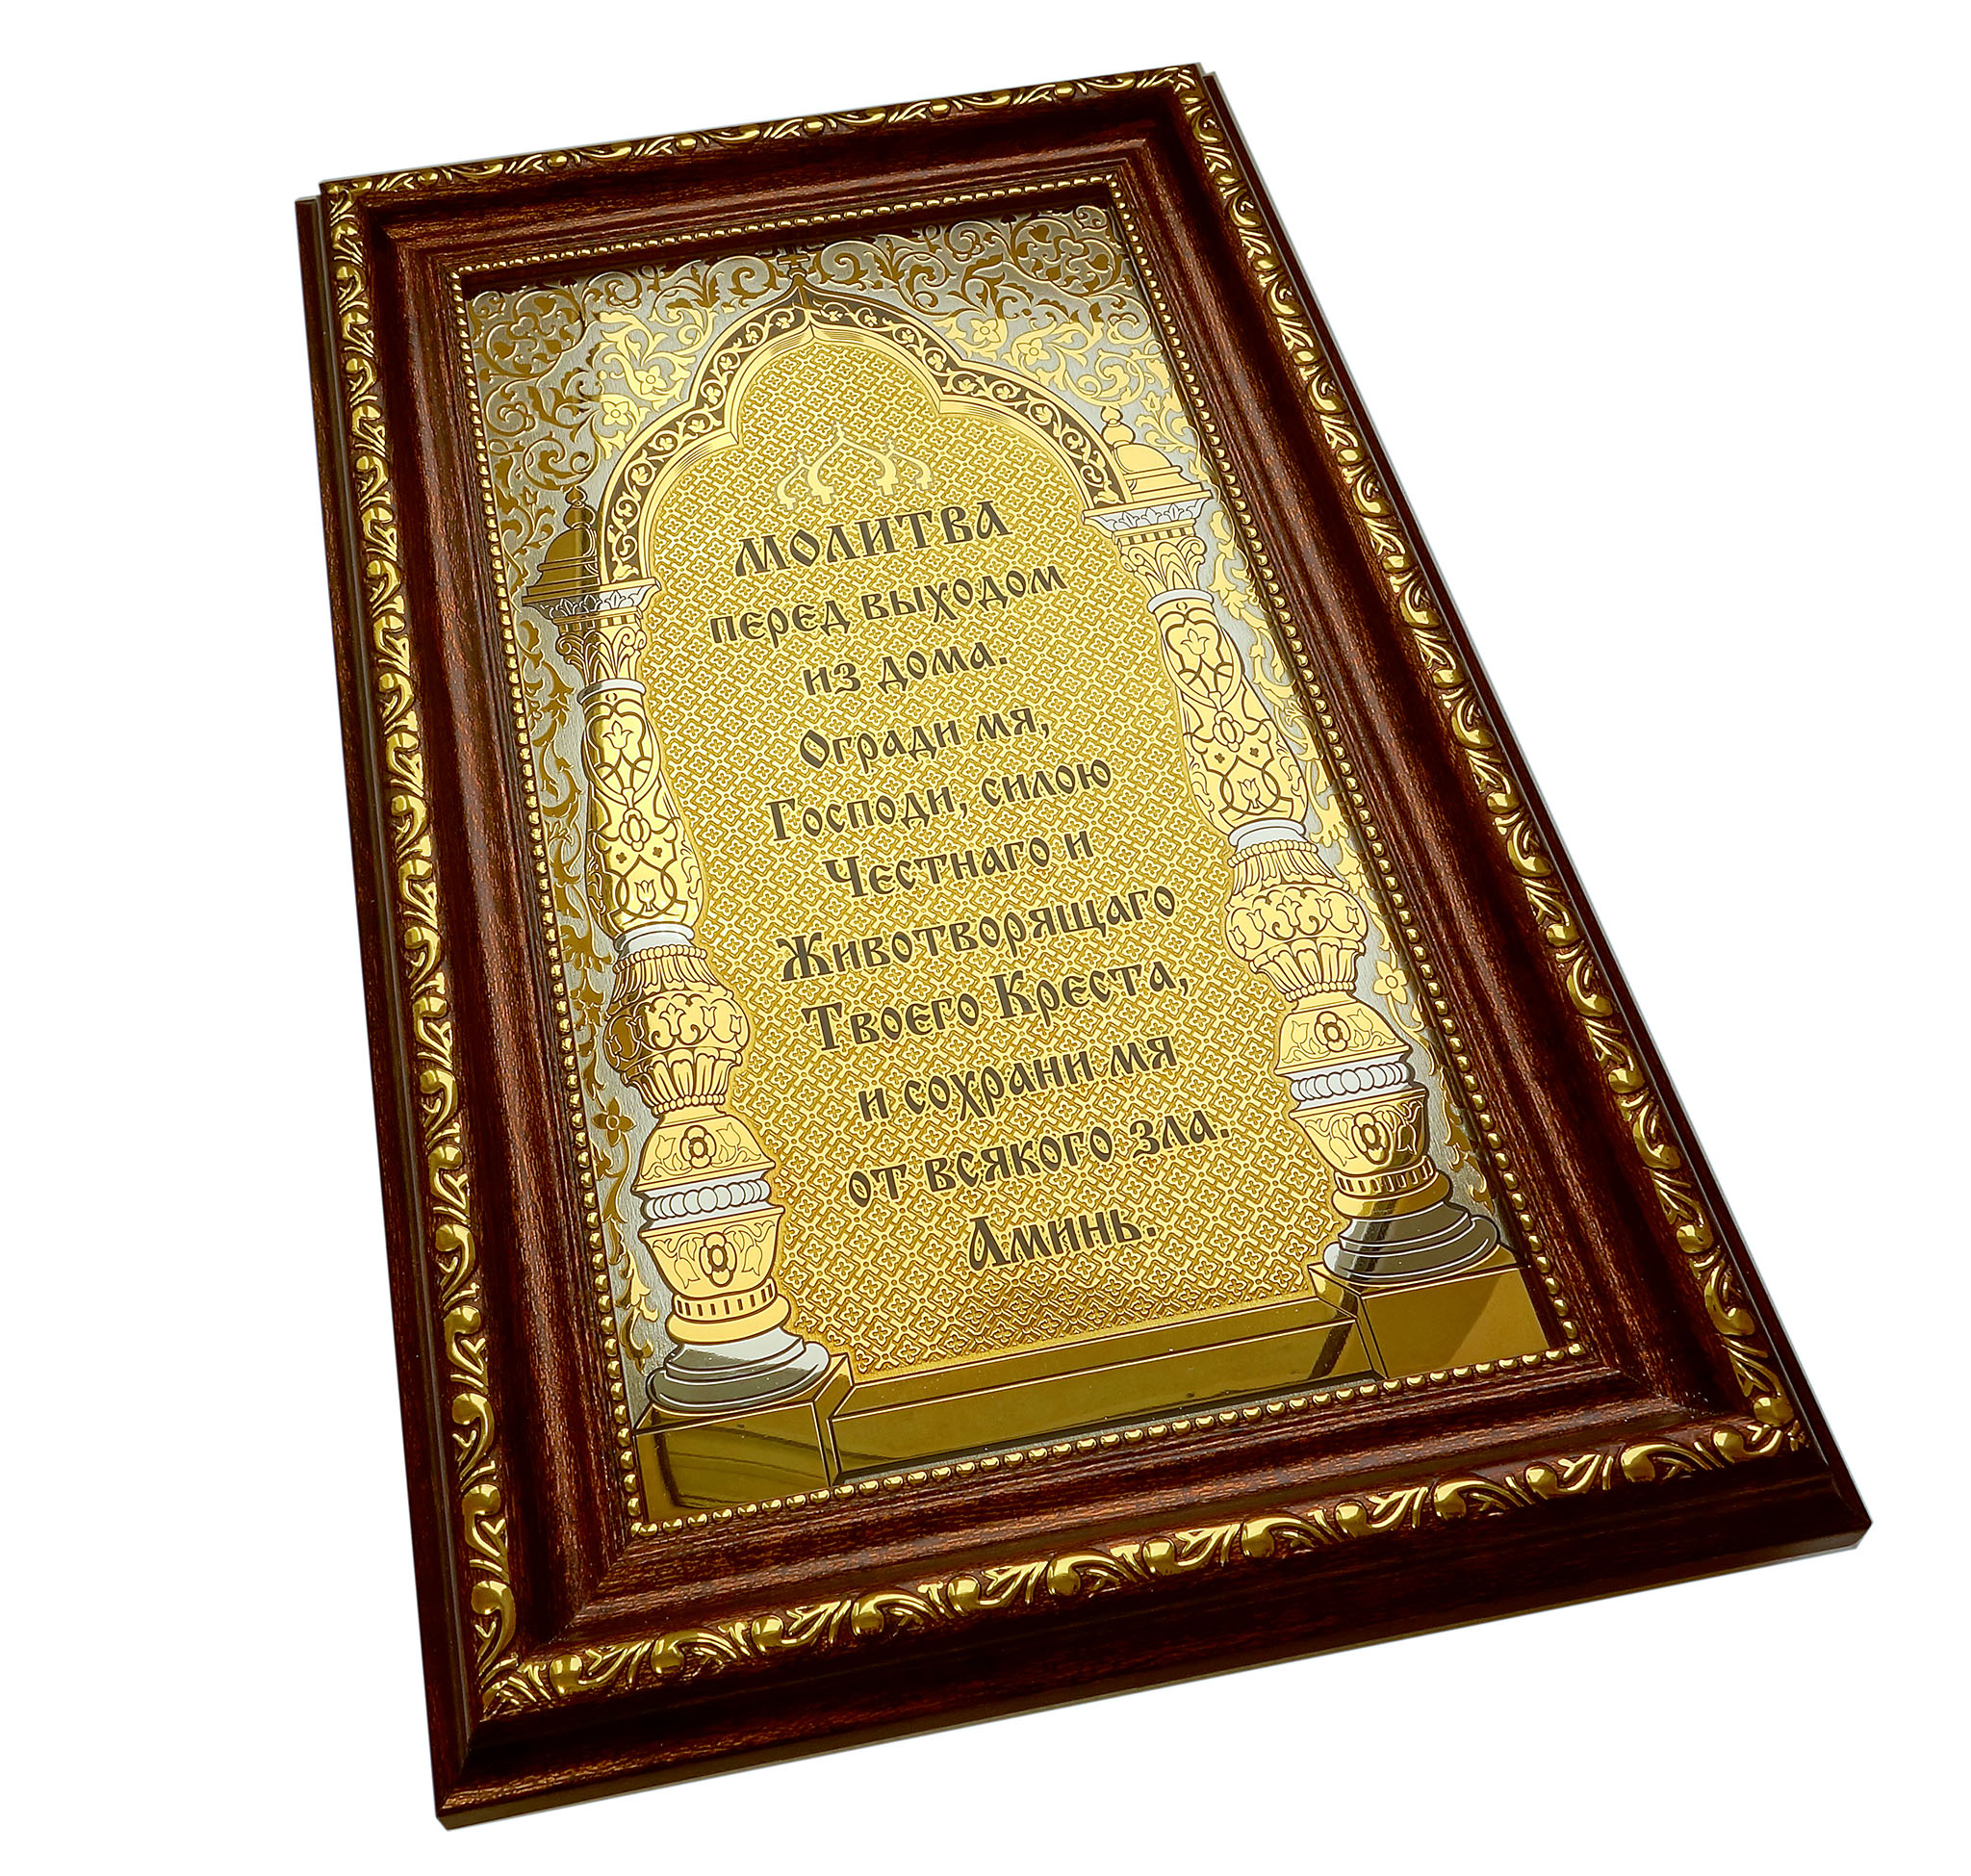 МОЛИТВА
перед выходом
из дома.
Огради мя,
Господи, силою
Честнаго и
Животворящаго
Твоего Креста,
и сохрани мя
от всякого зла.
Аминь.